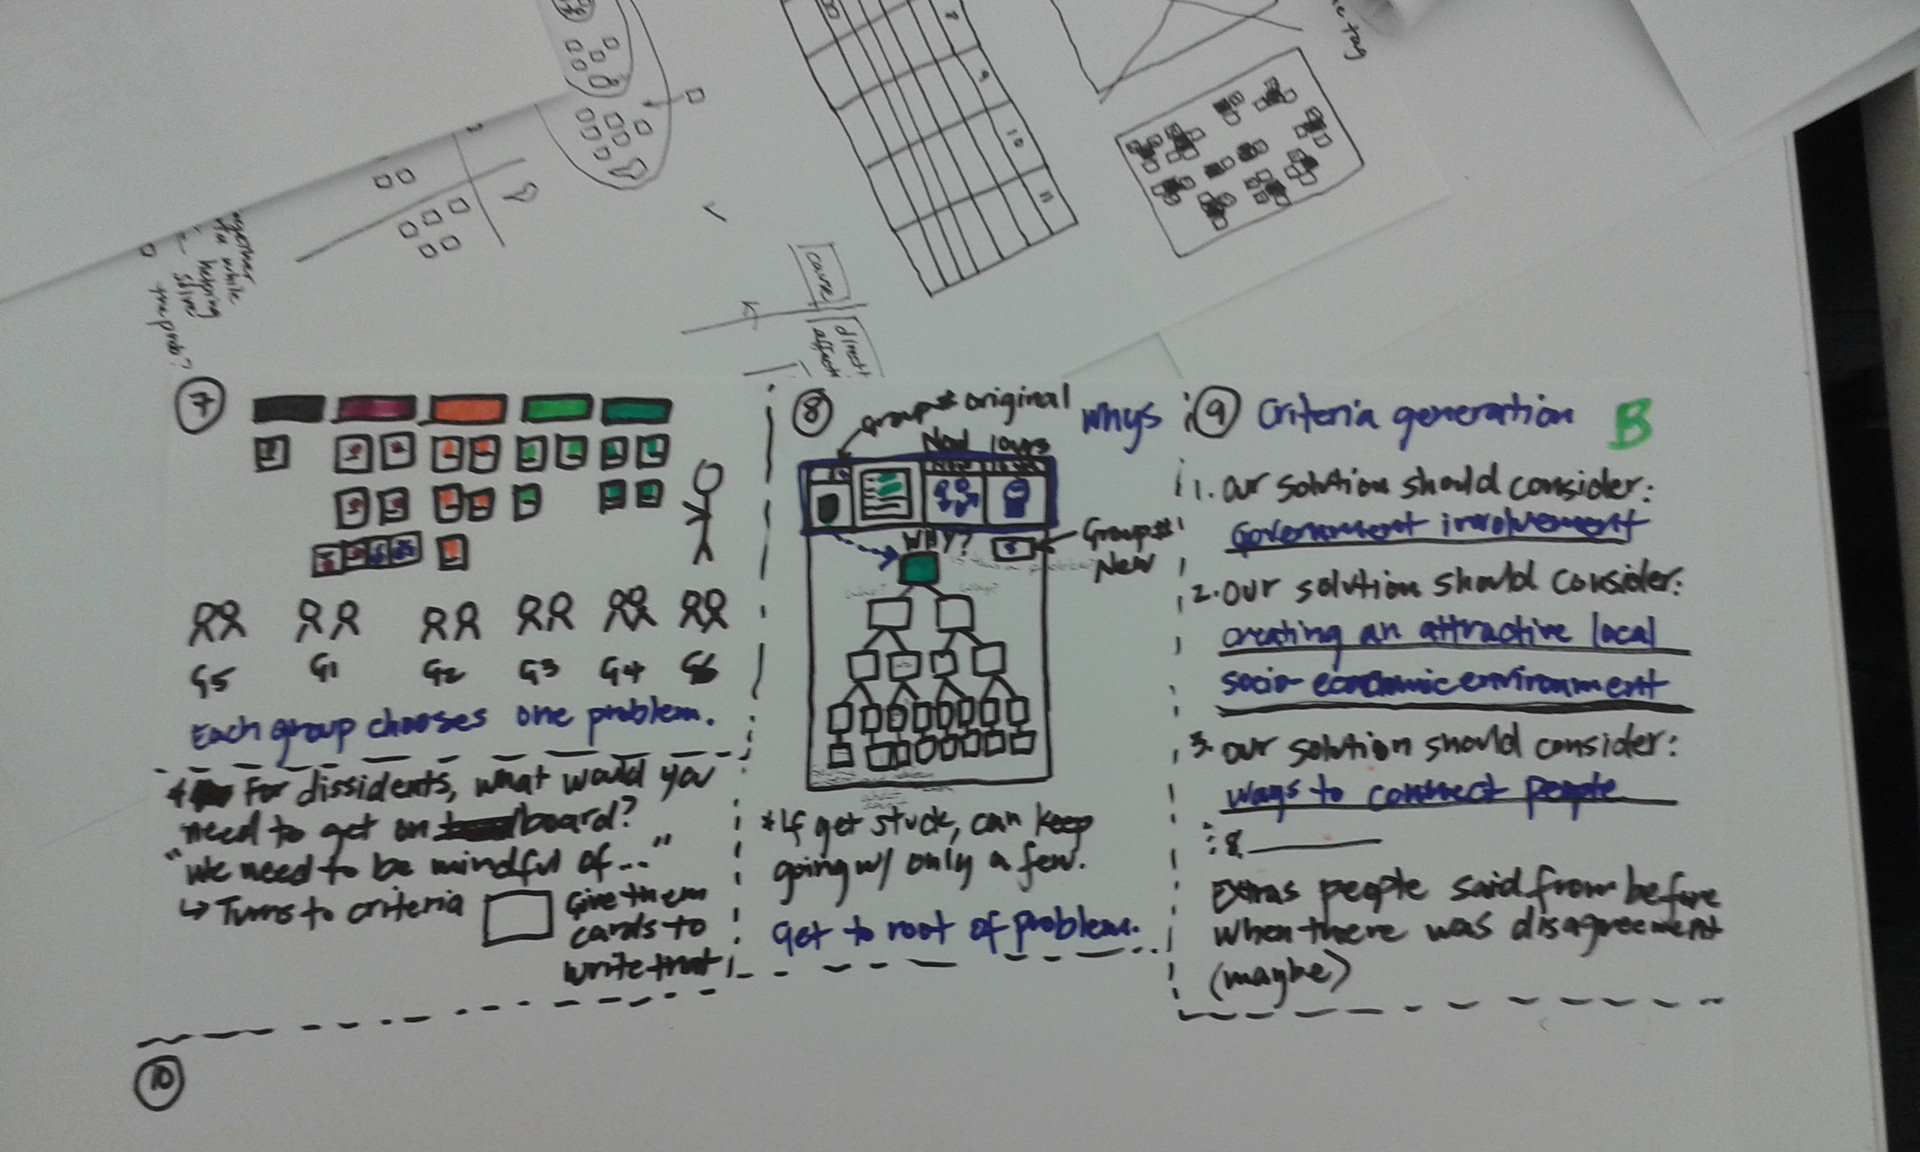 e tag
8
9
10
11
cause
direct
together
while
helping
solve
the prob?
7
G5 G1 G2 G3 G4 G6
Each group chooses one problem.
* For dissidents, what would you
need to get on board?
"we need to be mindful of..."
↳ Turns to criteria
Give them
cards to
write that
8
group# original
Whys
WHY?
Group#
New
*If get stuck, can keep
going w/ only a few.
Get to root of problem.
9 Criteria generation B
1. Our solution should consider:
Government involvement
2. Our solution should consider:
creating an attractive local
socio-economic environment
3. Our solution should consider:
ways to connect people
8.
Extras people said from before
when there was disagreement
(maybe)
10